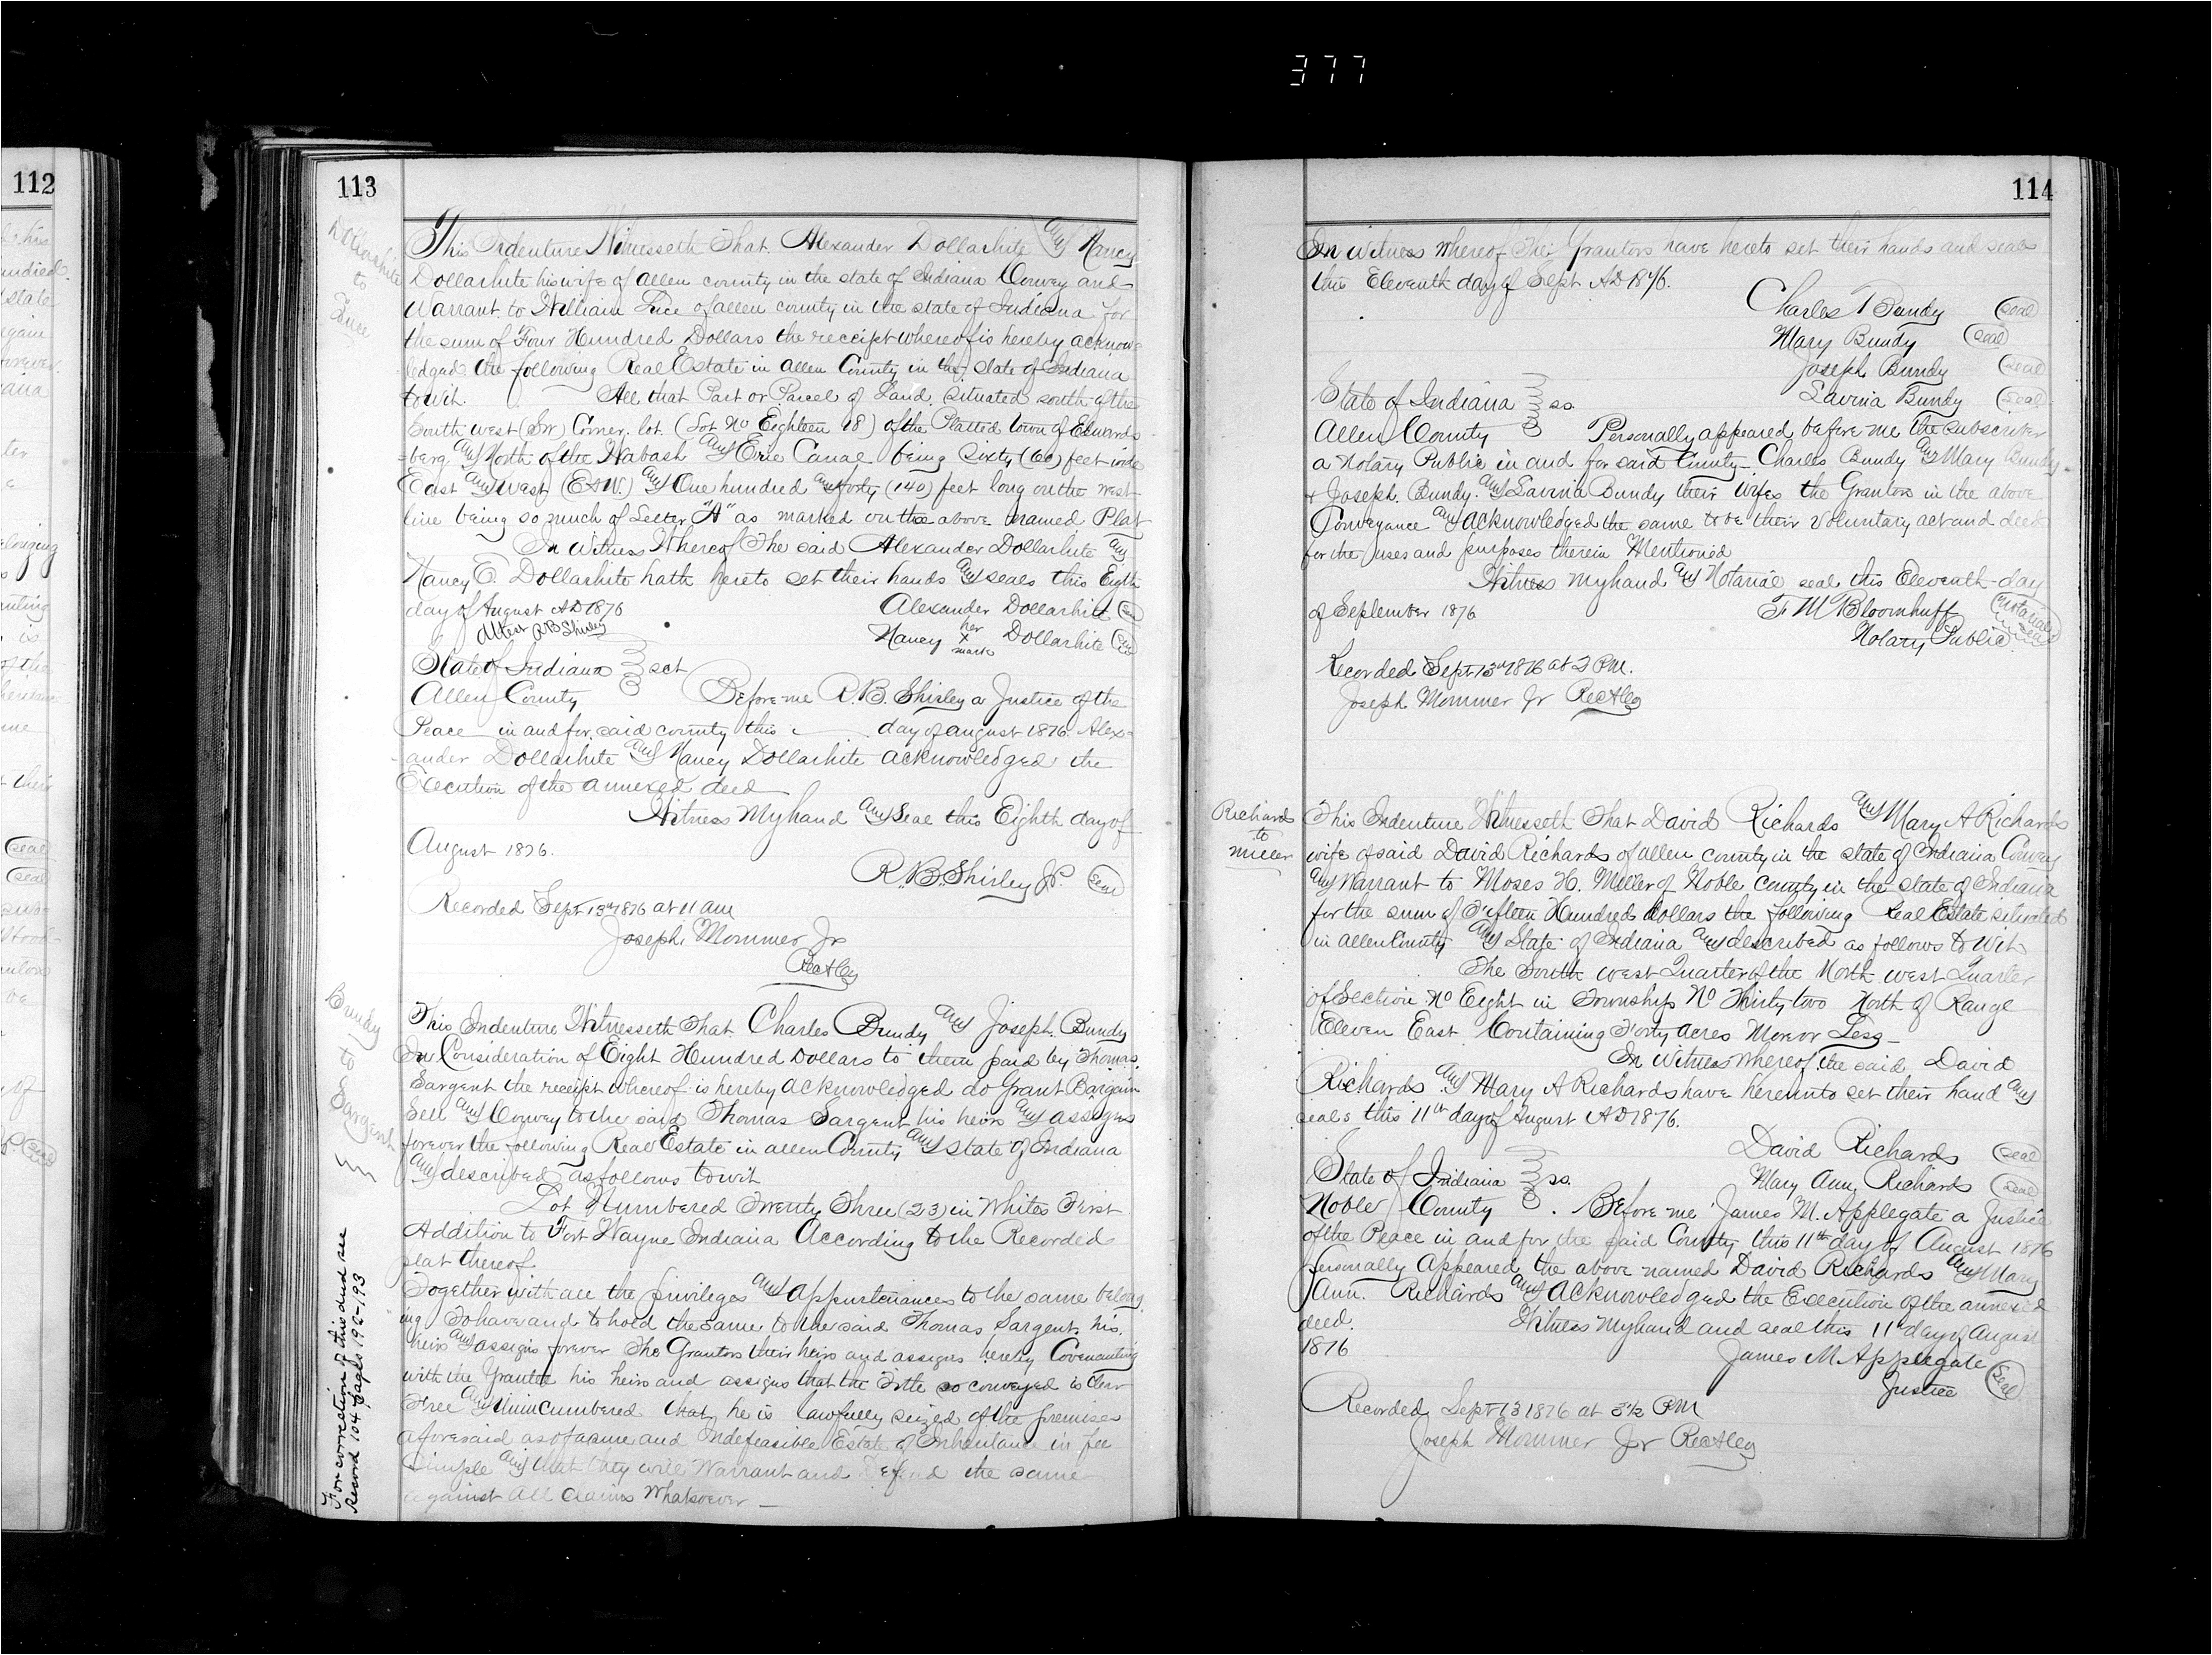 377
112
113
Dollarhite
to
This Indenture Witnesseth That Alexander Dollarhite and Nancy
Dollarhite his wife of allen county in the state of Indiana Convey and
Warrant to William of allen county in the state of Indiana for
the sum of Four Hundred Dollars the receipt whereof is hereby acknow-
ledged the following Real Estate in allen County in the state of Indiana
towit. All that Part or Parcel of Land situated south of the
South west (SW) Corner lot (Lot No Eighteen 18) of the Platted town of Edwards
=berg and North of the Wabash and Erie Canal being Sixty (60) feet wide
East and West (E&W.) and One hundred and forty (140) feet long on the west
line being so much of Letter "A" as marked on the above named Plat
In Witness Whereof The said Alexander Dollarhite and
Nancy E. Dollarhite hath hereto set their hands and seals this Eigth
day of August AD 1876 Alexander Dollarhite (seal)
Attest RB Shirley Nancy her x mark Dollarhite (seal)
State of Indiana } sct
Allen County Before me R.B. Shirley a Justice of the
Peace in and for said county this day of august 1876 Alex=
ander Dollarhite and Nancy Dollarhite acknowledged the
Execution of the annexed deed
Witness My hand and Seal this Eighth day of
August 1876.
R.B. Shirley J.P. (seal)
Recorded Sept 13th 1876 at 11 am
Joseph Mommer Jr
Rec
Bundy
to
Sargent
This Indenture Witnesseth That Charles Bundy and Joseph Bundy
In Consideration of Eight Hundred Dollars to them paid by Thomas
Sargent the receipt whereof is hereby acknowledged do Grant Bargain
Sell and Convey to the said Thomas Sargent his heirs and assigns
forever the following Real Estate in allen County and state of Indiana
and described as follows to wit
Lot Numbered Twenty Three (23) in Whites First
Addition to Fort Wayne Indiana According to the Recorded
plat thereof
Together with all the privileges and appurtenances to the same belong
ing To have and to hold the same to the said Thomas Sargent his
heirs and assigns forever The Grantors their heirs and assigns hereby Covenanting
with the Grantee his heirs and assigns that the Title so conveyed is Clear
Free and Unincumbered that he is lawfully seized of the premises
aforesaid as of a sure and Indefeasible Estate of Inheritance in fee
Simple and that they will Warrant and Defend the same
against All Claims Whatsoever
For correction of this deed see
Record 104 pages 192-193
114
In witness whereof The Grantors have hereto set their hands and seals
this Eleventh day of Sept AD 1876.
Charles Bundy (seal)
Mary Bundy (seal)
Joseph Bundy (seal)
State of Indiana } ss. Lavina Bundy (seal)
Allen County Personally appeared before me the subscriber
a Notary Public in and for said County Charles Bundy and Mary Bundy
& Joseph Bundy and Lavina Bundy their wifes the Grantors in the above
Conveyance and acknowledged the same to be their voluntary act and deed
for the uses and purposes therein Mentioned
Witness my hand and Notarial seal this Eleventh day
of September 1876 Notarial seal
Notary Public
Recorded Sept 13th 1876 at 2 P.M.
Joseph Mommer Jr Rec
Richards
to
Miller
This Indenture Witnesseth That David Richards and Mary A Richards
wife of said David Richards of allen county in the state of Indiana Convey
and Warrant to Moses H. Miller of Noble County in the state of Indiana
for the sum of Fifteen Hundred dollars the following Real Estate situated
in allen County and State of Indiana and described as follows to Wit
The South west Quarter of the North west Quarter
of Section No Eight in Township No Thirty two North of Range
Eleven East Containing Forty acres More or Less
In Witness whereof the said David
Richards and Mary A Richards have hereunto set their hand and
seals this 11th day of August AD 1876.
David Richards (seal)
State of Indiana } ss. Mary Ann Richards (seal)
Noble County Before me James M. Applegate a Justice
of the Peace in and for the said County this 11th day of August 1876
Personally Appeared the above named David Richards and Mary
Ann. Richards and Acknowledged the Execution of the annexed
deed. Witness my hand and seal this 11th day of August
1876 James M Applegate
Justice (seal)
Recorded Sept 13 1876 at 3½ PM
Joseph Mommer Jr Rec